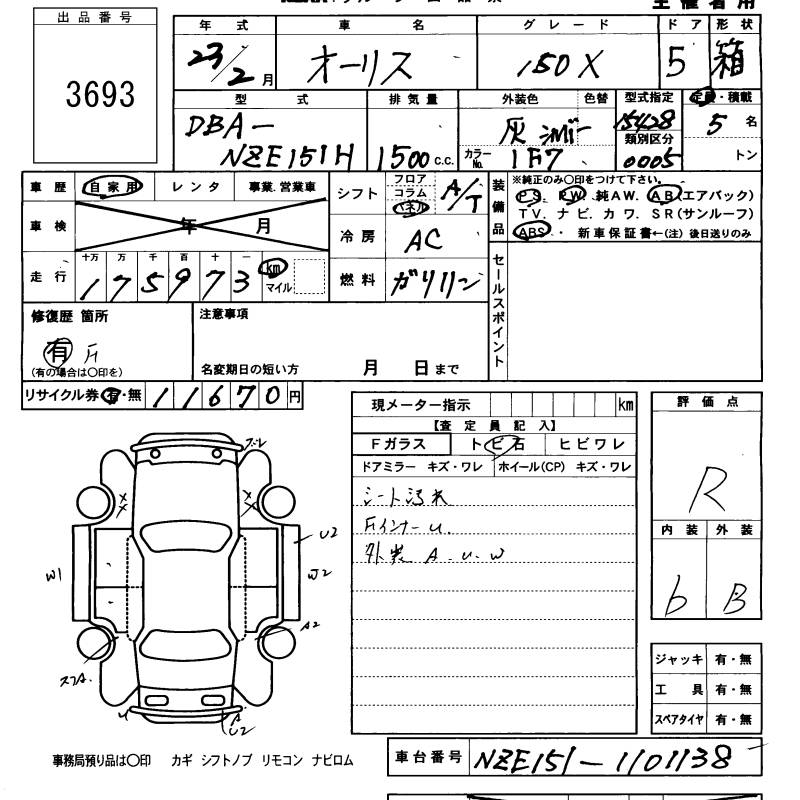 主催者用
出品番号
3693
年式 車名 グレード ドア 形状
23/2月 オーリス 150X 5 箱
型式 排気量 外装色 色替 型式指定 定員・積載
DBA- NZE151H 1500c.c. 灰 シルバー 15428 5名
カラーNo. 1F7 類別区分 0005 トン
車歴 自家用 レンタ 事業.営業車 シフト フロア コラム パネル A/T
装備品 ※純正のみ○印をつけて下さい。
PS. PW. 純AW. AB(エアバック)
TV. ナビ. カワ. SR(サンルーフ)
ABS・ 新車保証書←(注) 後日送りのみ
車検 年 月 冷房 AC
走行 十万 万 千 百 十 一
175973 km マイル 燃料 ガソリン
セールスポイント
修復歴 箇所 注意事項
有 F
(有の場合は○印を) 名変期日の短い方 月 日まで
リサイクル券 有・無 11670円
現メーター指示 km
【査定員記入】
Fガラス トビ石 ヒビワレ
ドアミラー キズ・ワレ ホイール(CP) キズ・ワレ
シート汚れ
FインナーU.
外装 A. U. W
評価点
R
内装 外装
b B
ジャッキ 有・無
工具 有・無
スペアタイヤ 有・無
ズレ
U2
W1
W2
A2
スフA.
U
A
U2
事務局預り品は○印 カギ シフトノブ リモコン ナビロム
車台番号 NZE151-1101138